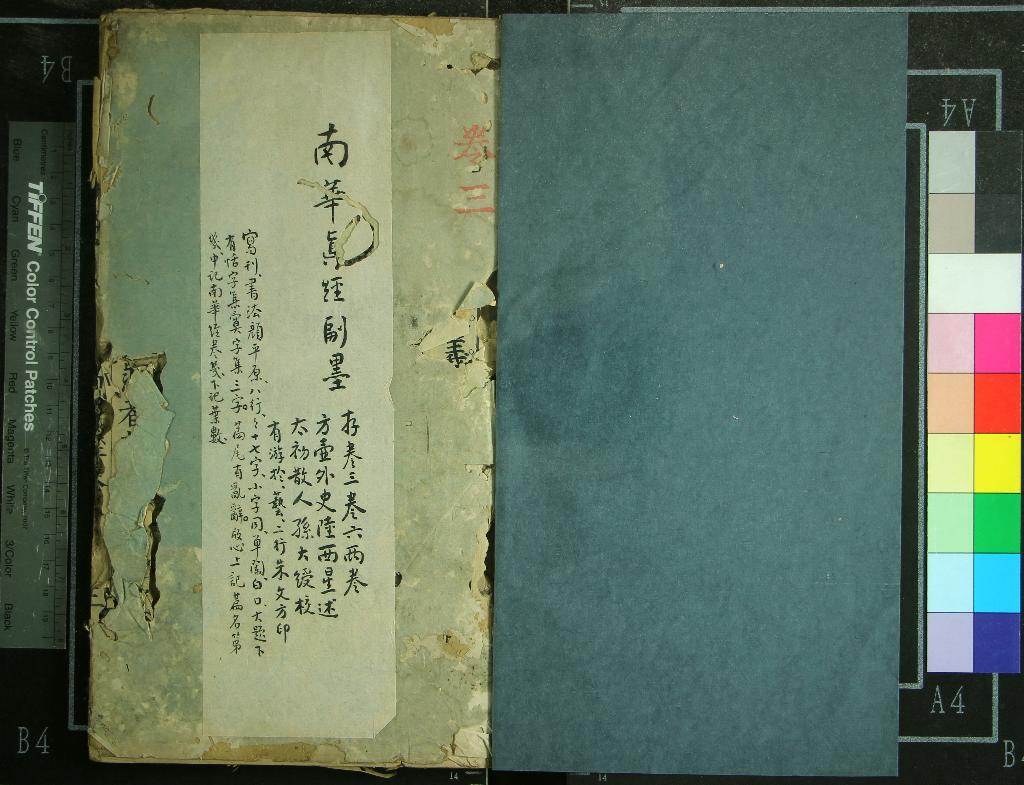 卷三
南華真經副墨
存卷三卷六兩卷
方壺外史陸西星述
太初散人孫大綬校
有游於藝二行朱文方印
寫刊書法顏平原八行〻十七字小字同單闌白口大題下
有恬字集寞字集三字篇尾有亂辭版心上記篇名第
幾中記南華經卷幾下記葉數
TIFFEN Color Control Patches
Centimetres
Blue
Cyan
Green
Yellow
Red
Magenta
White
3/Color
Black
B4
A4
B4
A4
B4
14
14